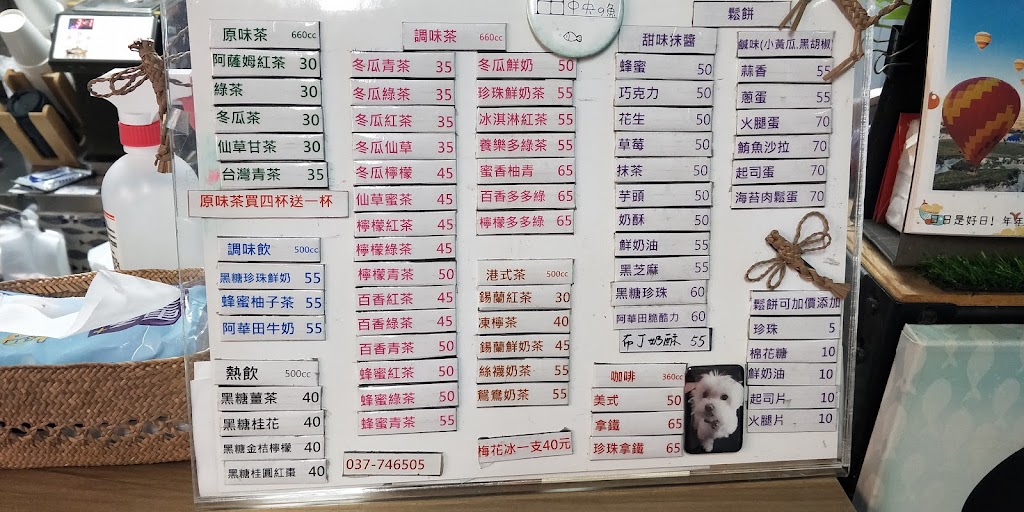 原味茶 660cc
阿薩姆紅茶 30
綠茶 30
冬瓜茶 30
仙草甘茶 30
台灣青茶 35
原味茶買四杯送一杯
調味飲 500cc
黑糖珍珠鮮奶 55
蜂蜜柚子茶 55
阿華田牛奶 55
熱飲 500cc
黑糖薑茶 40
黑糖桂花 40
黑糖金桔檸檬 40
黑糖桂圓紅棗 40
調味茶 660cc
冬瓜青茶 35
冬瓜綠茶 35
冬瓜紅茶 35
冬瓜仙草 35
冬瓜檸檬 45
仙草蜜茶 45
檸檬紅茶 45
檸檬綠茶 45
檸檬青茶 50
百香紅茶 45
百香綠茶 45
百香青茶 50
蜂蜜紅茶 50
蜂蜜綠茶 50
蜂蜜青茶 55
037-746505
冬瓜鮮奶 50
珍珠鮮奶茶 55
冰淇淋紅茶 55
養樂多綠茶 55
蜜香柚青 65
百香多多綠 65
檸檬多多綠 65
港式茶 500cc
錫蘭紅茶 30
凍檸茶 40
錫蘭鮮奶茶 45
絲襪奶茶 55
鴛鴦奶茶 55
梅花冰一支40元
甜味抹醬
蜂蜜 50
巧克力 50
花生 50
草莓 50
抹茶 50
芋頭 50
奶酥 50
鮮奶油 55
黑芝麻 55
黑糖珍珠 60
阿華田脆酷力 60
布丁奶酥 55
咖啡 360cc
美式 50
拿鐵 65
珍珠拿鐵 65
鬆餅
鹹味(小黃瓜.黑胡椒
蒜香 55
蔥蛋 55
火腿蛋 70
鮪魚沙拉 70
起司蛋 70
海苔肉鬆蛋 70
鬆餅可加價添加
珍珠 5
棉花糖 10
鮮奶油 10
起司片 10
火腿片 10
日是好日! 年年